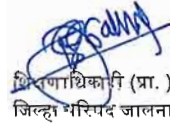 शिक्षणाधिकारी (प्रा.)
जिल्हा परिषद जालना